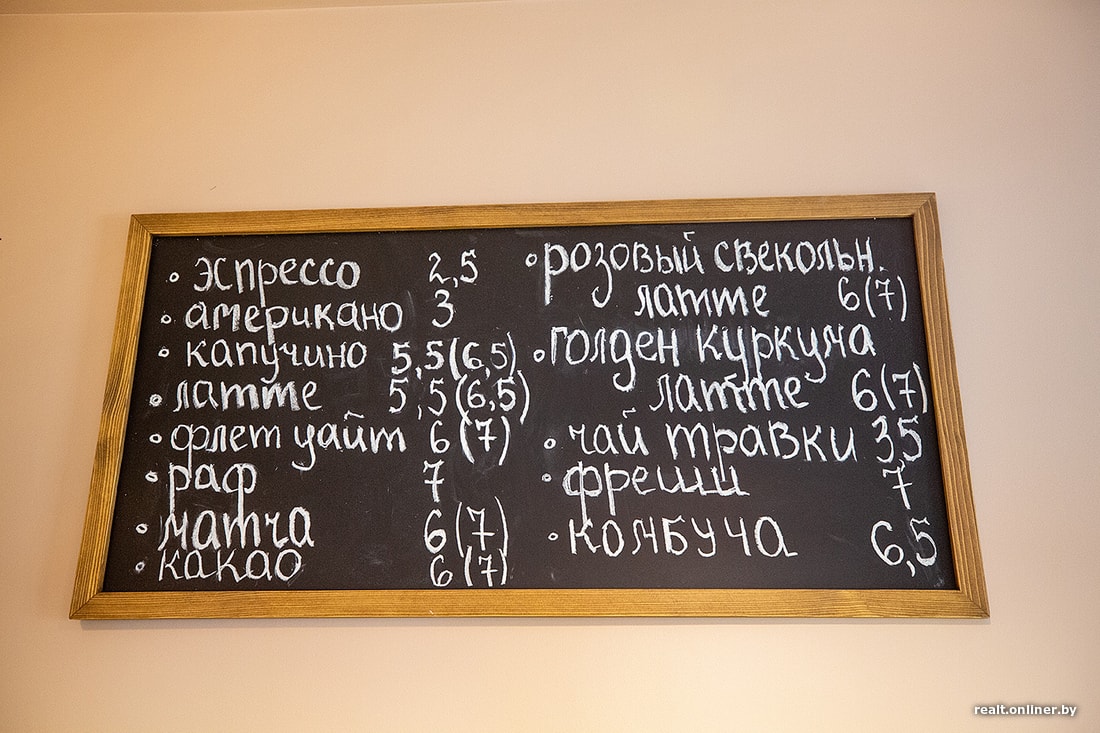 эспрессо 2,5
американо 3
капучино 5,5(6,5)
латте 5,5(6,5)
флет уайт 6(7)
раф 7
матча 6(7)
какао 6(7)
розовый свекольн.
латте 6(7)
голден куркума
латте 6(7)
чай травки 3,5
фреши 7
комбуча 6,5
realt.onliner.by